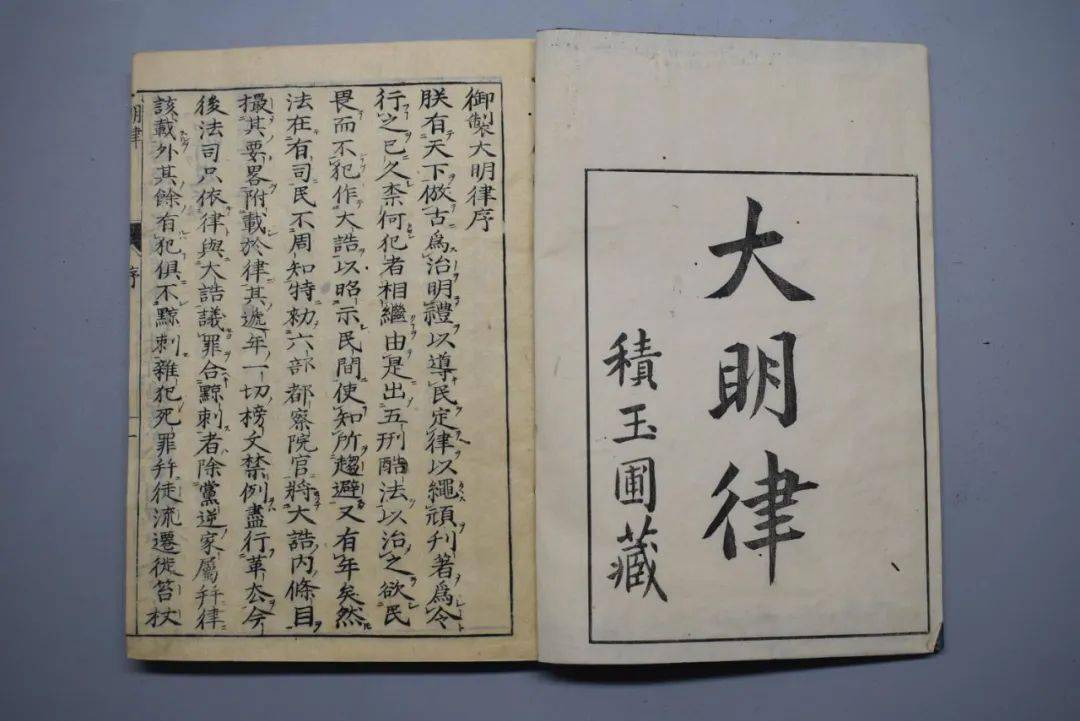 大明律
積玉圃藏
御製大明律序
朕有天下倣古爲治明禮以導民定律以繩頑刋著爲令
行之已久柰何犯者相繼由是出五刑酷法以治之欲民
畏而不犯作大誥以昭示民間使知所趨避又有年矣然
法在有司民不周知特勑六部都察院官將大誥内條目
撮其要畧附載於律其遞年一切榜文禁例盡行革去今
後法司只依律與大誥議罪合黥刺者除黨逆家屬幷律
該載外其餘有犯俱不黥刺雜犯死罪幷徒流遷徙笞杖
明律 序 一